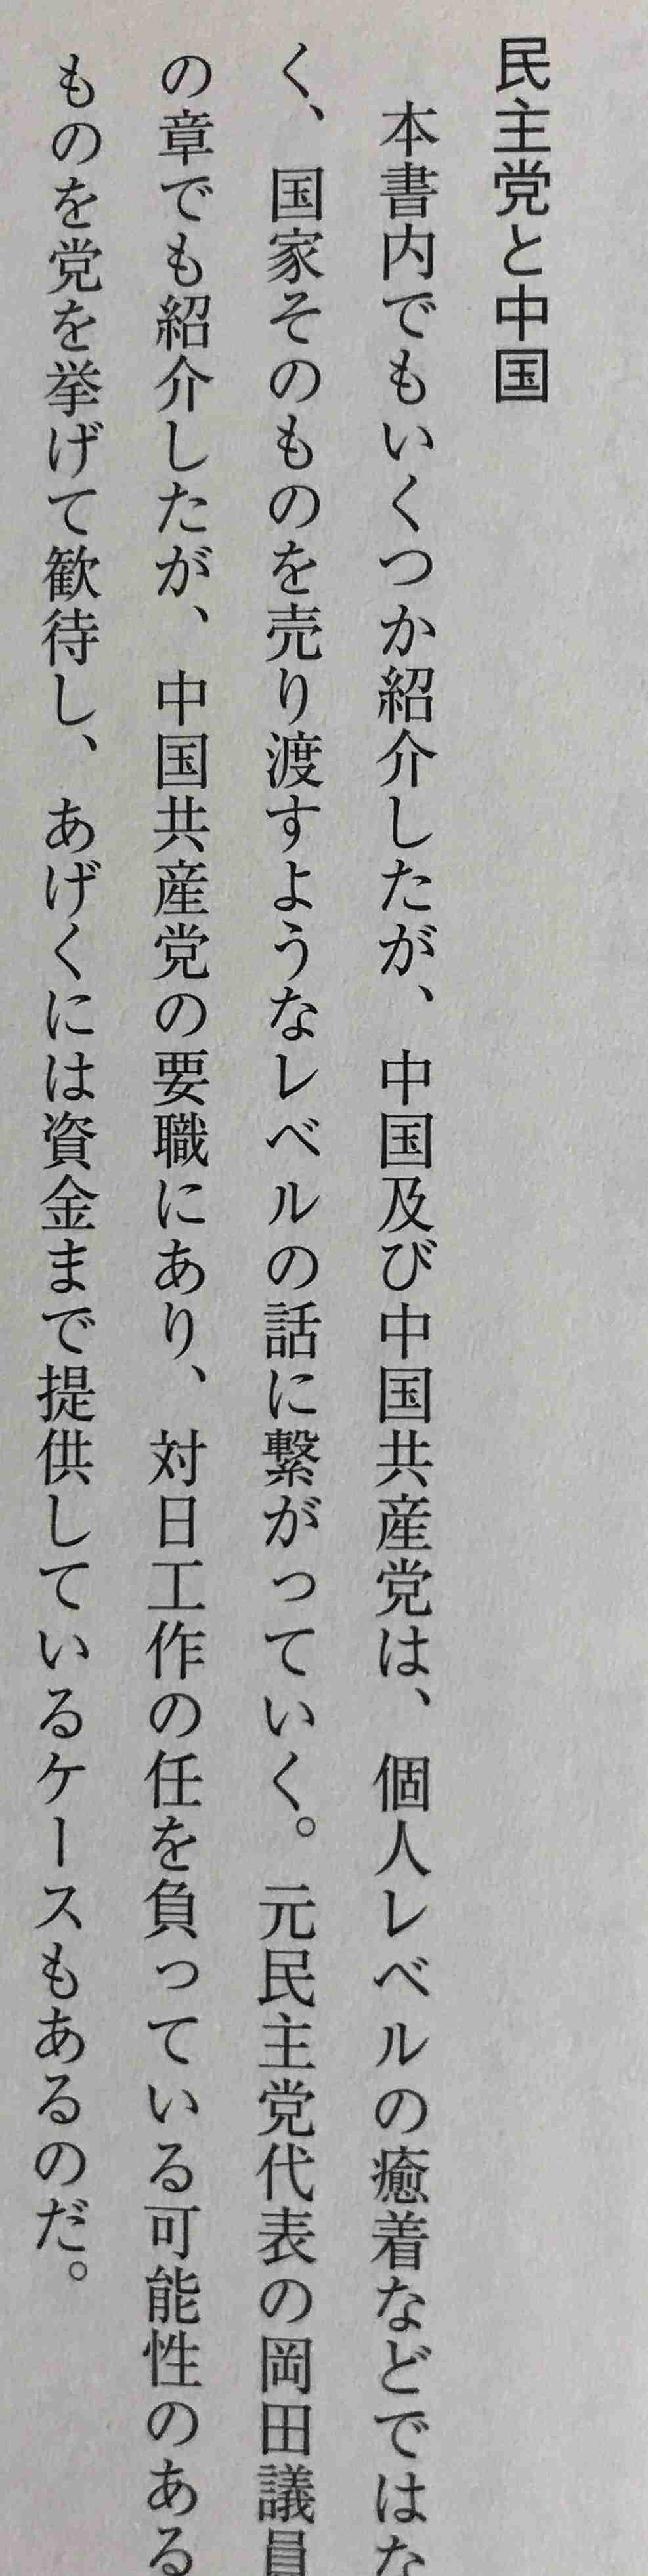 民主党と中国
本書内でもいくつか紹介したが、中国及び中国共産党は、個人レベルの癒着などではな
く、国家そのものを売り渡すようなレベルの話に繋がっていく。元民主党代表の岡田議員
の章でも紹介したが、中国共産党の要職にあり、対日工作の任を負っている可能性のある
ものを党を挙げて歓待し、あげくには資金まで提供しているケースもあるのだ。